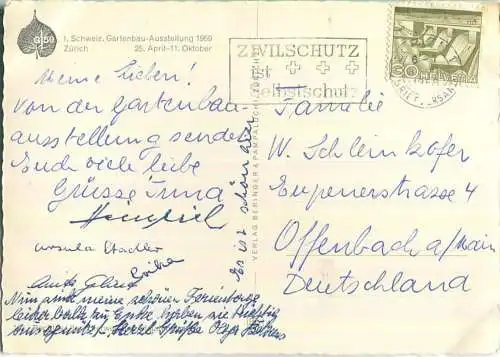 G59
I. Schweiz. Gartenbau-Ausstellung 1959
Zürich 25. April-11. Oktober
ZIVILSCHUTZ
ist
Selbstschutz
30 HELVETIA
Meine Lieben!
Von der Gartenbau-
ausstellung sendet
Euch viele liebe
Grüsse Irma
Ursula Stadler
Erika
Anita
Es ist schön hier
Nun sind meine schönen Ferientage
leider bald zu Ende, haben sie tüchtig
ausgenützt. Herzl. Grüße Olga
VERLAG BERINGER & PAMPALUCHI, ZÜRICH
Familie
W. Schleinkofer
Eupenerstrasse 4
Offenbach a/Main
Deutschland